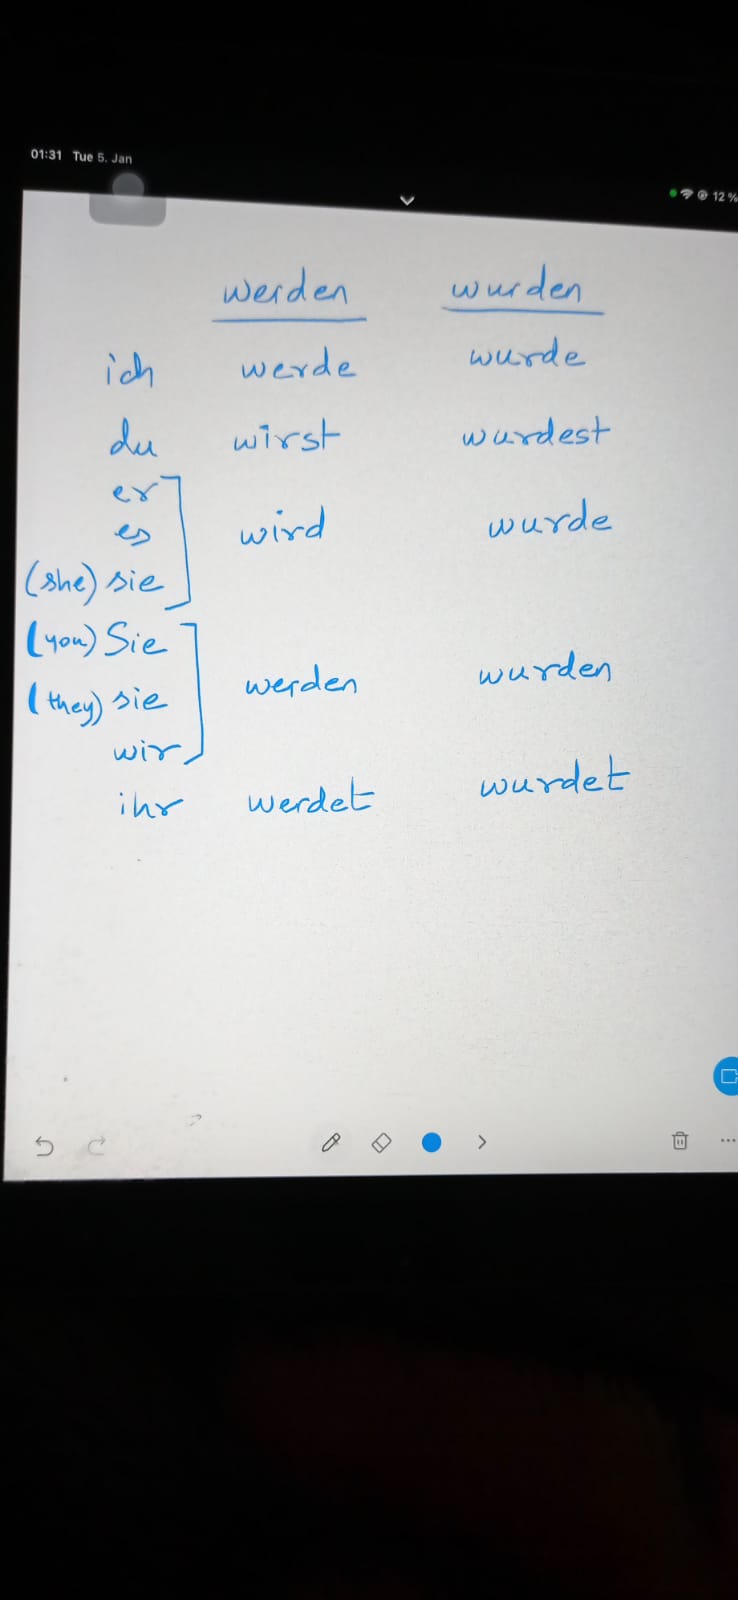 01:31 Tue 5. Jan
12 %
werden wurden
ich werde wurde
du wirst wurdest
er
es wird wurde
(she) sie
(you) Sie
(they) sie werden wurden
wir
ihr werdet wurdet